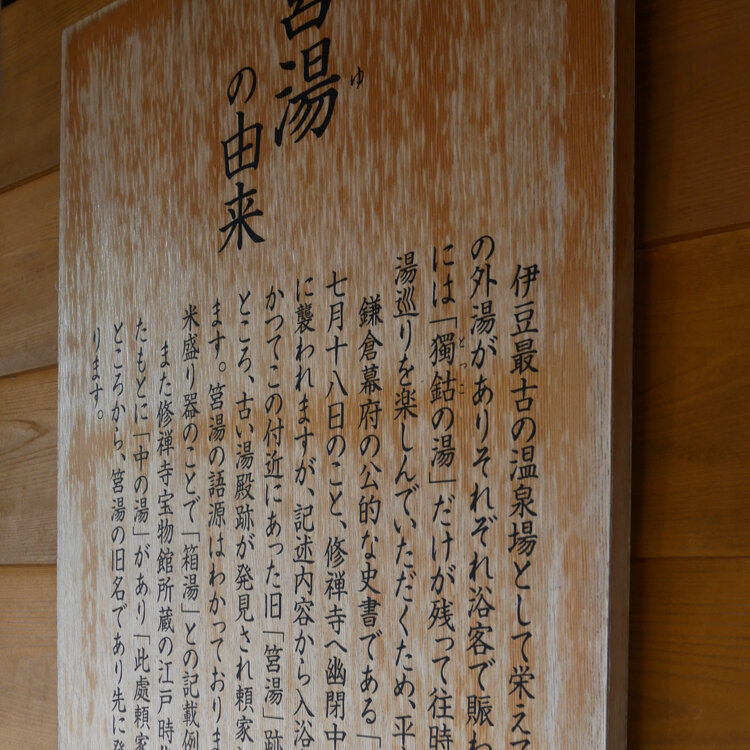 筥湯
ゆ
の由来
伊豆最古の温泉場として栄えて
の外湯がありそれぞれ浴客で賑わ
には「獨鈷の湯」だけが残って往時
とっこ
湯巡りを楽しんでいただくため、平
鎌倉幕府の公的な史書である「
七月十八日のこと、修禅寺へ幽閉中
に襲われますが、記述内容から入浴
かつてこの付近にあった旧「筥湯」跡
ところ、古い湯殿跡が発見され頼家
ます。筥湯の語源はわかっておりま
米盛り器のことで「箱湯」との記載例
また修禅寺宝物館所蔵の江戸時
たもとに「中の湯」があり「此處頼家
ところから、筥湯の旧名であり先に発
ります。